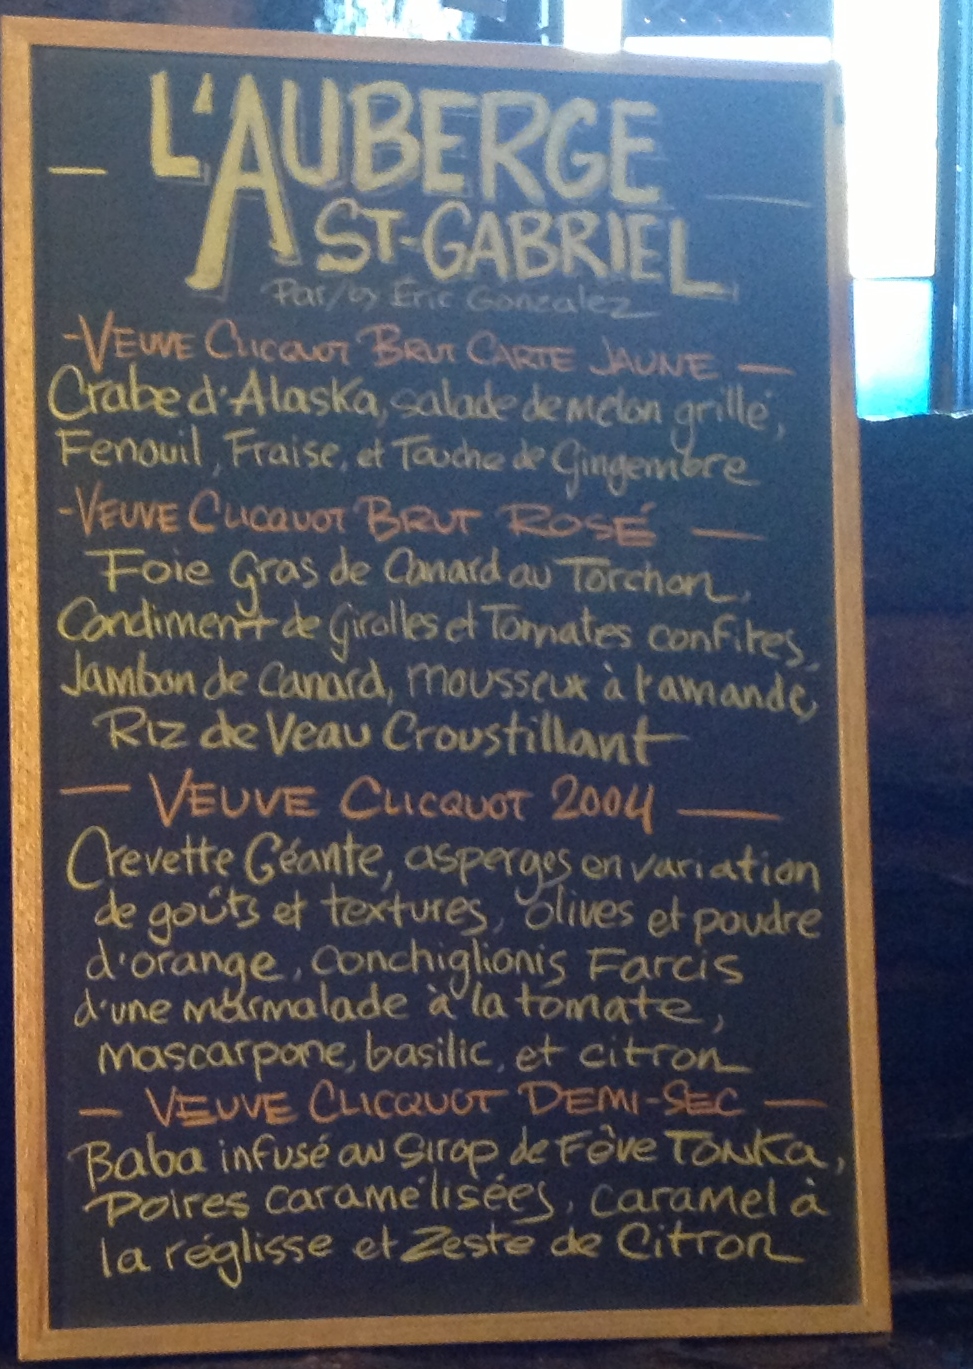 L'AUBERGE
ST-GABRIEL
Par/by Éric Gonzalez
-VEUVE CLICQUOT BRUT CARTE JAUNE -
Crabe d'Alaska, salade de melon grillé,
Fenouil, Fraise, et Touche de Gingembre
-VEUVE CLICQUOT BRUT ROSÉ -
Foie Gras de Canard au Torchon,
Condiment de Girolles et Tomates confites,
Jambon de Canard, mousseux à l'amande,
Riz de Veau Croustillant
- VEUVE CLICQUOT 2004 -
Crevette Géante, asperges en variation
de goûts et textures, olives et poudre
d'orange, conchiglionis Farcis
d'une marmalade à la tomate,
mascarpone, basilic, et citron
- VEUVE CLICQUOT DEMI-SEC -
Baba infusé au Sirop de Fève TONKA,
Poires caramélisées, caramel à
la réglisse et Zeste de Citron